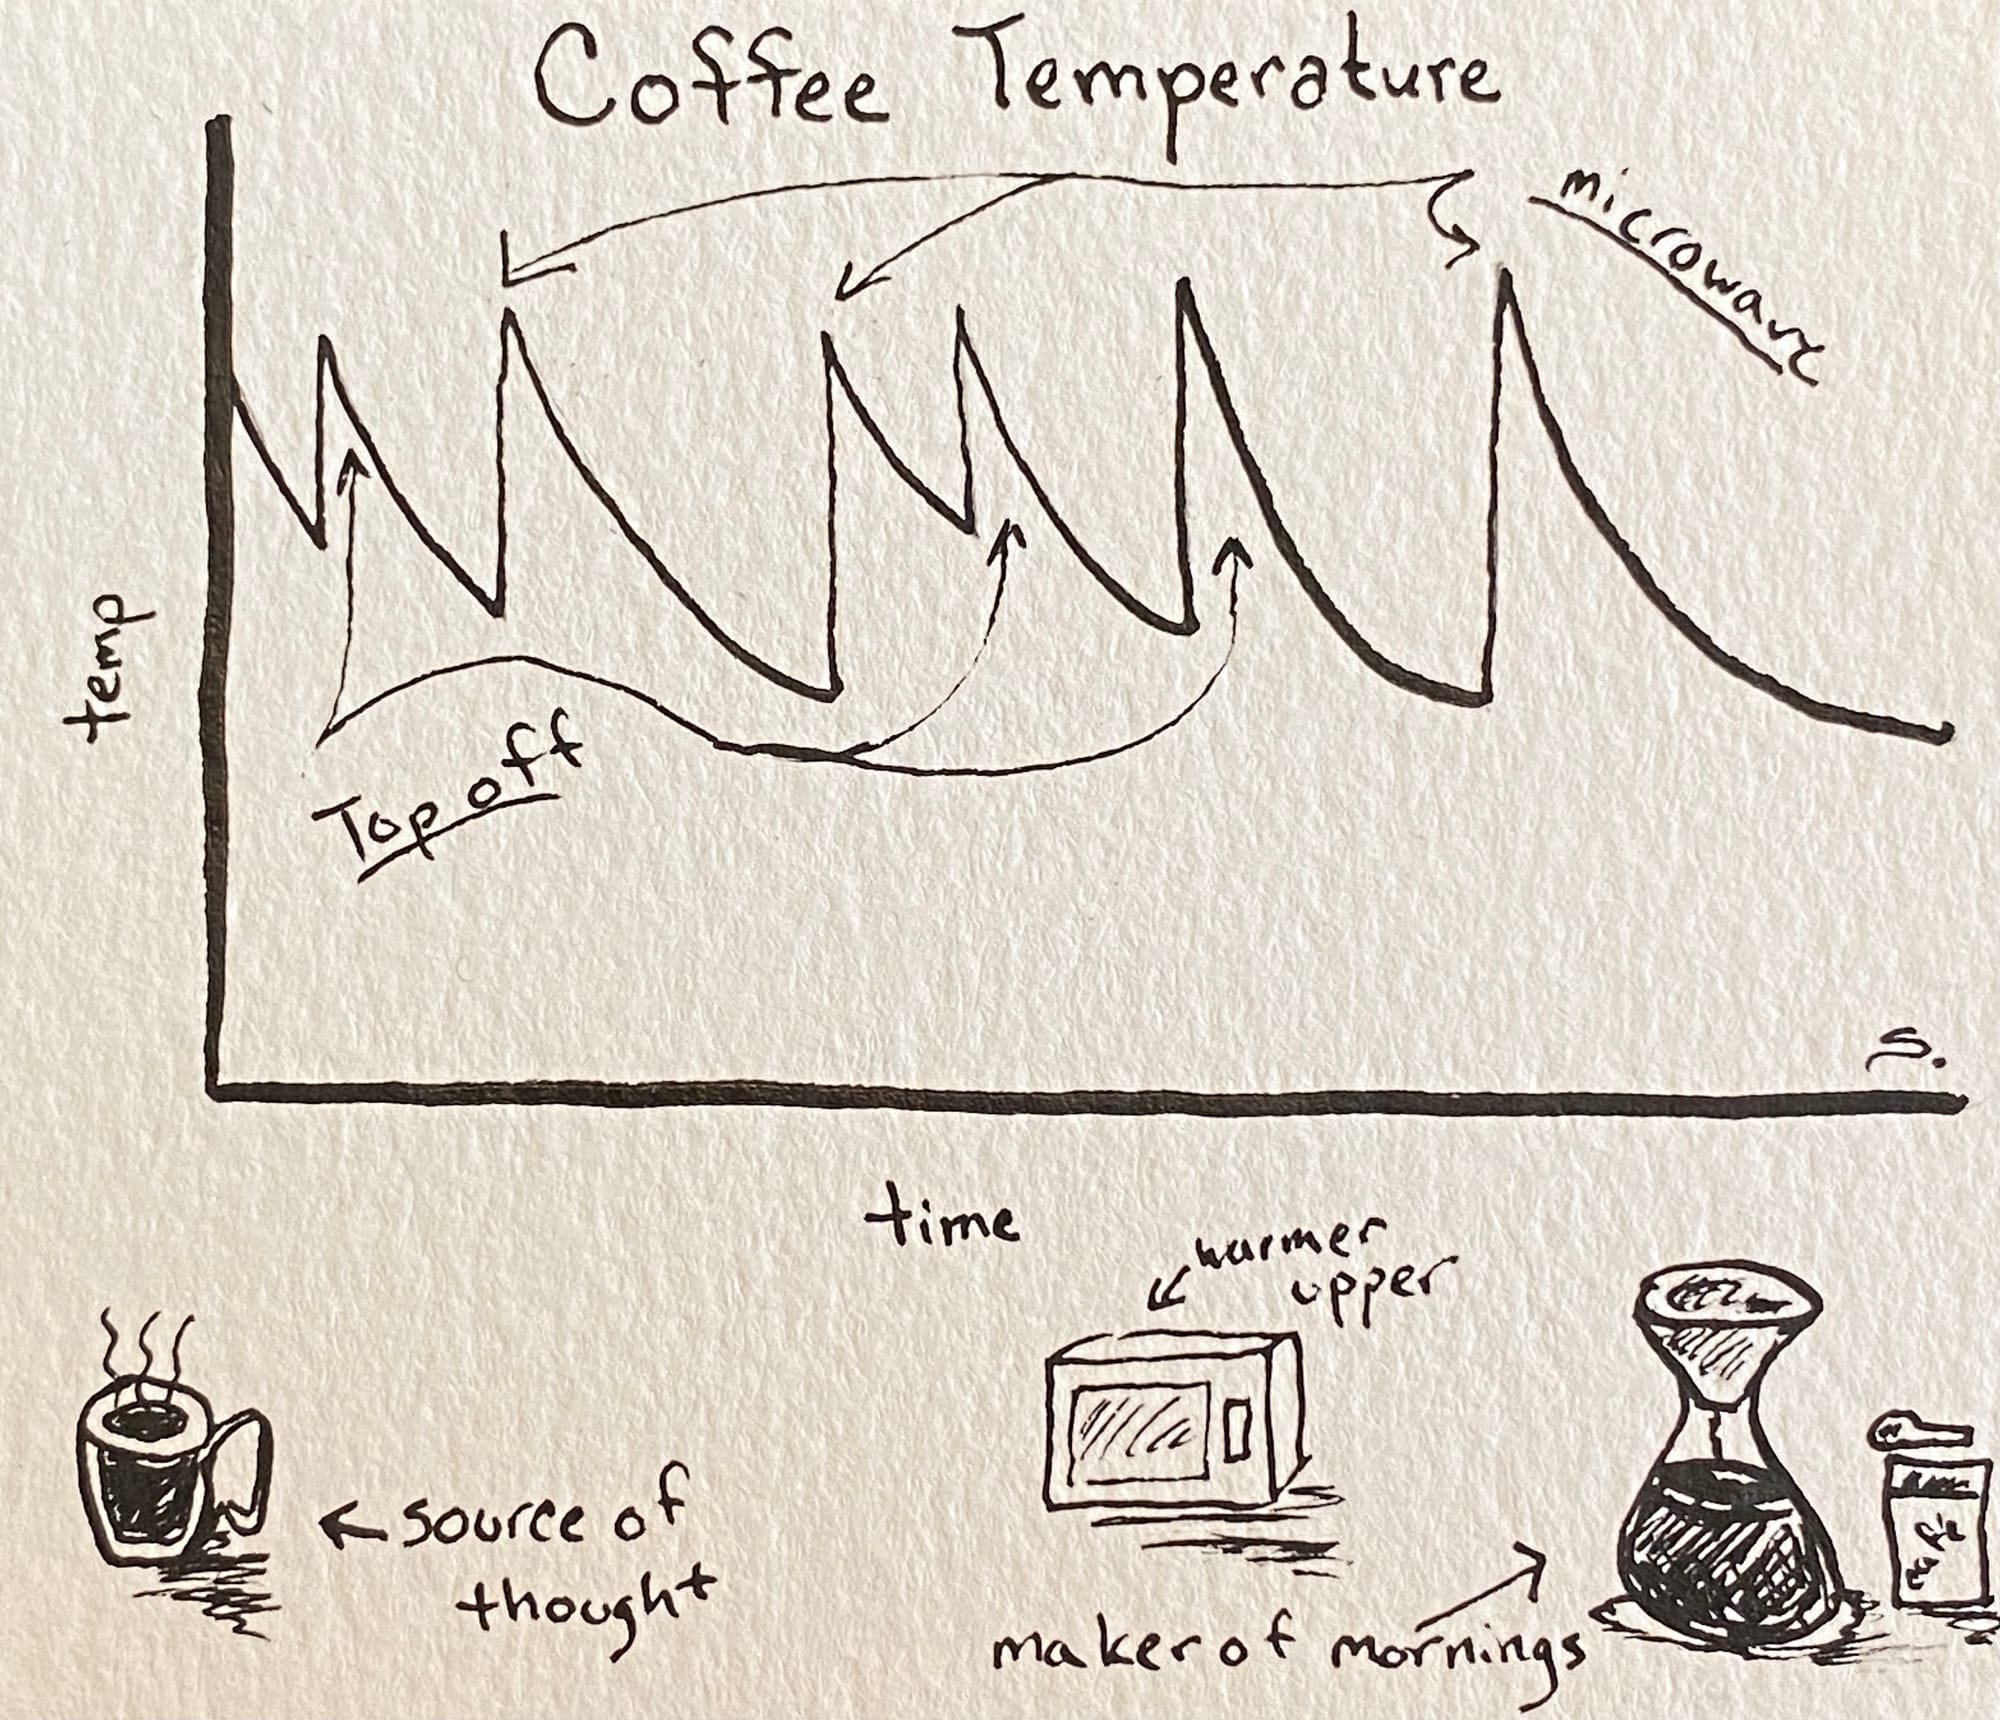 Coffee Temperature
microwave
temp
Top off
s.
time
warmer
upper
source of
thought
maker of mornings